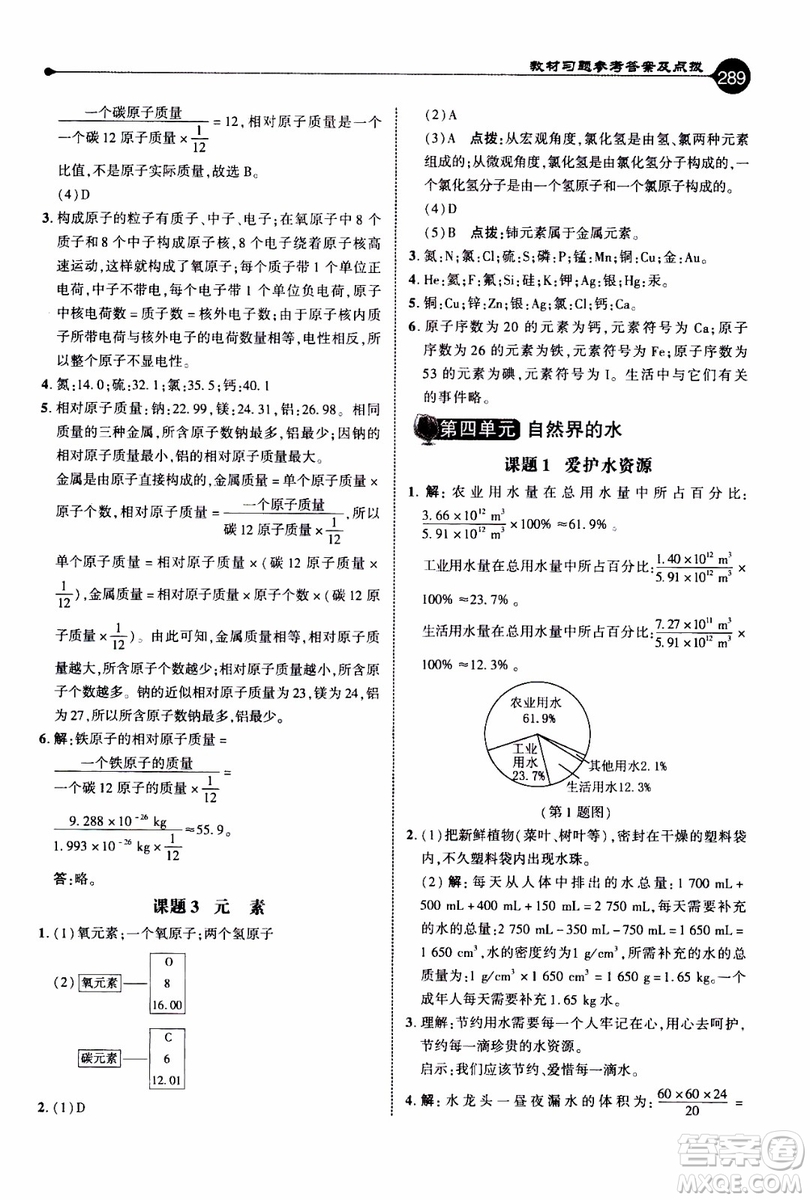 教材习题参考答案及点拨
289
一个碳原子质量
一个碳 12 原子质量 × 1/12 ,相对原子质量是一个
比值,不是原子实际质量,故选 B。
(4)D
3. 构成原子的粒子有质子、中子、电子;在氧原子中 8 个
质子和中子构成原子核,8 个电子绕着原子核高
速运动,这样就构成了氧原子;质子带 1 个单位正
电荷,中子不带电,每个电子带 1 个单位负电荷,原
子中核电荷数 = 质子数 = 核外电子数;由于原子核内
质子所带电荷与核外电子的电荷数量相等,电性相反,所
以整个原子不显电性。
4. 氮:14.0;硫:32.1;氯;钙:40.1
5. 相对原子质量:钠:22.99,镁:24.31,铝:26.98。相同
质量的三种金属,所含原子个数钠最多。因钠的
相对原子质量最小,所含原子数最大。
金属是由原子直接构成的,金属所含原子个数 =
单个金属原子质量。由相对原子质量 = 一个原子质量
原子个数,金属的相对原子质量 = 一个原子质量 / 碳 12 原子质量 × 1/12 ,所以
单个原子质量 = 相对原子质量 × (碳 12 原子质量 ×
1/12 ),金属质量 = 原子个数 × 相对原子质量 × (碳 12 原
子质量 × 1/12 )。由此可知,金属质量相等,相对原子质
量越大,所含原子数越少;相对原子质量越小,所含原
子个数越多。钠的近似相对原子质量为 23,镁为 24,铝
为 27,所以所含原子数钠最多。
6. 解:铁原子的相对原子质量 =
一个铁原子的质量 / 一个碳 12 原子质量 × 1/12 =
9.288 × 10⁻²⁶ kg / 1.993 × 10⁻²⁶ kg × 1/12 ≈55.9。
答:略。
课题 3 元 素
1. (1)氧元素;一个氧原子;两个氢原子
(2) 氧元素
O
8
16.00
碳元素
C
6
12.01
2. (1)D
(2)A
(3)A 点拨:从宏观角度,氯化氢由氢、氯两种元素
组成的;从微观角度,氯化氢是由氯化氢分子构成的,一
个氯化氢分子是由一个氢原子和一个氯原子构成的。
(4)D
(5)B 点拨:铈元素属于金属元素。
3. 氮:N;氯:Cl;硫:S;磷:P;锰:Mn;铜:Cu;金:Au。
4. He:氦;F:氟;Si:硅;K:钾;Ag:银;Hg:汞。
5. 铜:Cu;锌:Zn;银:Ag;铝:Al;氯:Cl;钙:Ca。
6. 原子序数为 20 的元素为钙,元素符号为 Ca;原子
序数为 26 的元素为铁,元素符号为 Fe;原子序数为
53 的元素为碘,元素符号为 I。生活中与它们有关
的事件略。
第四单元 自然界的水
课题 1 爱护水资源
1. 解:农业用水量在总用水量中所占百分比:
3.66 × 10¹² m³ / 5.91 × 10¹² m³ × 100% ≈61.9% 。
工业用水量在总用水量中所占百分比: 1.40 × 10¹² m³ / 5.91 × 10¹² m³ ×
100% ≈23.7% 。
生活用水量在总用水量中所占百分比: 7.27 × 10¹¹ m³ / 5.91 × 10¹² m³ ×
100% ≈12.3% 。
农业用水
61.9%
工业
用水
23.7%
其他用水2.1%
生活用水12.3%
(第 1 题图)
2. (1)把新鲜植物(菜叶、树叶等),密封在干燥的塑料袋
内,不久塑料袋内出现水珠。
(2)解:每天从人体中排出的水总量:1 700 mL +
500 mL + 400 mL + 150 mL = 2 750 mL,需要补充
的水的总量:2 750 mL - 350 mL - 750 mL = 1 650 mL =
1 650 cm³,水的密度约为 1 g/cm³,所以需要补充水
的质量为 1 650 cm³ × 1 g/cm³ = 1 650 g = 1.65 kg。一个
成年人每天需要补充 1.65 kg 水。
3. 理解:节约用水需要每一个人牢记在心,共同呵护,
节约每一滴珍贵的水资源。
启示:我们应该节约、爱惜每一滴水。
4. 解:水龙头一昼夜漏水的体积为: 60 × 60 × 24 / 20 =
答案圈